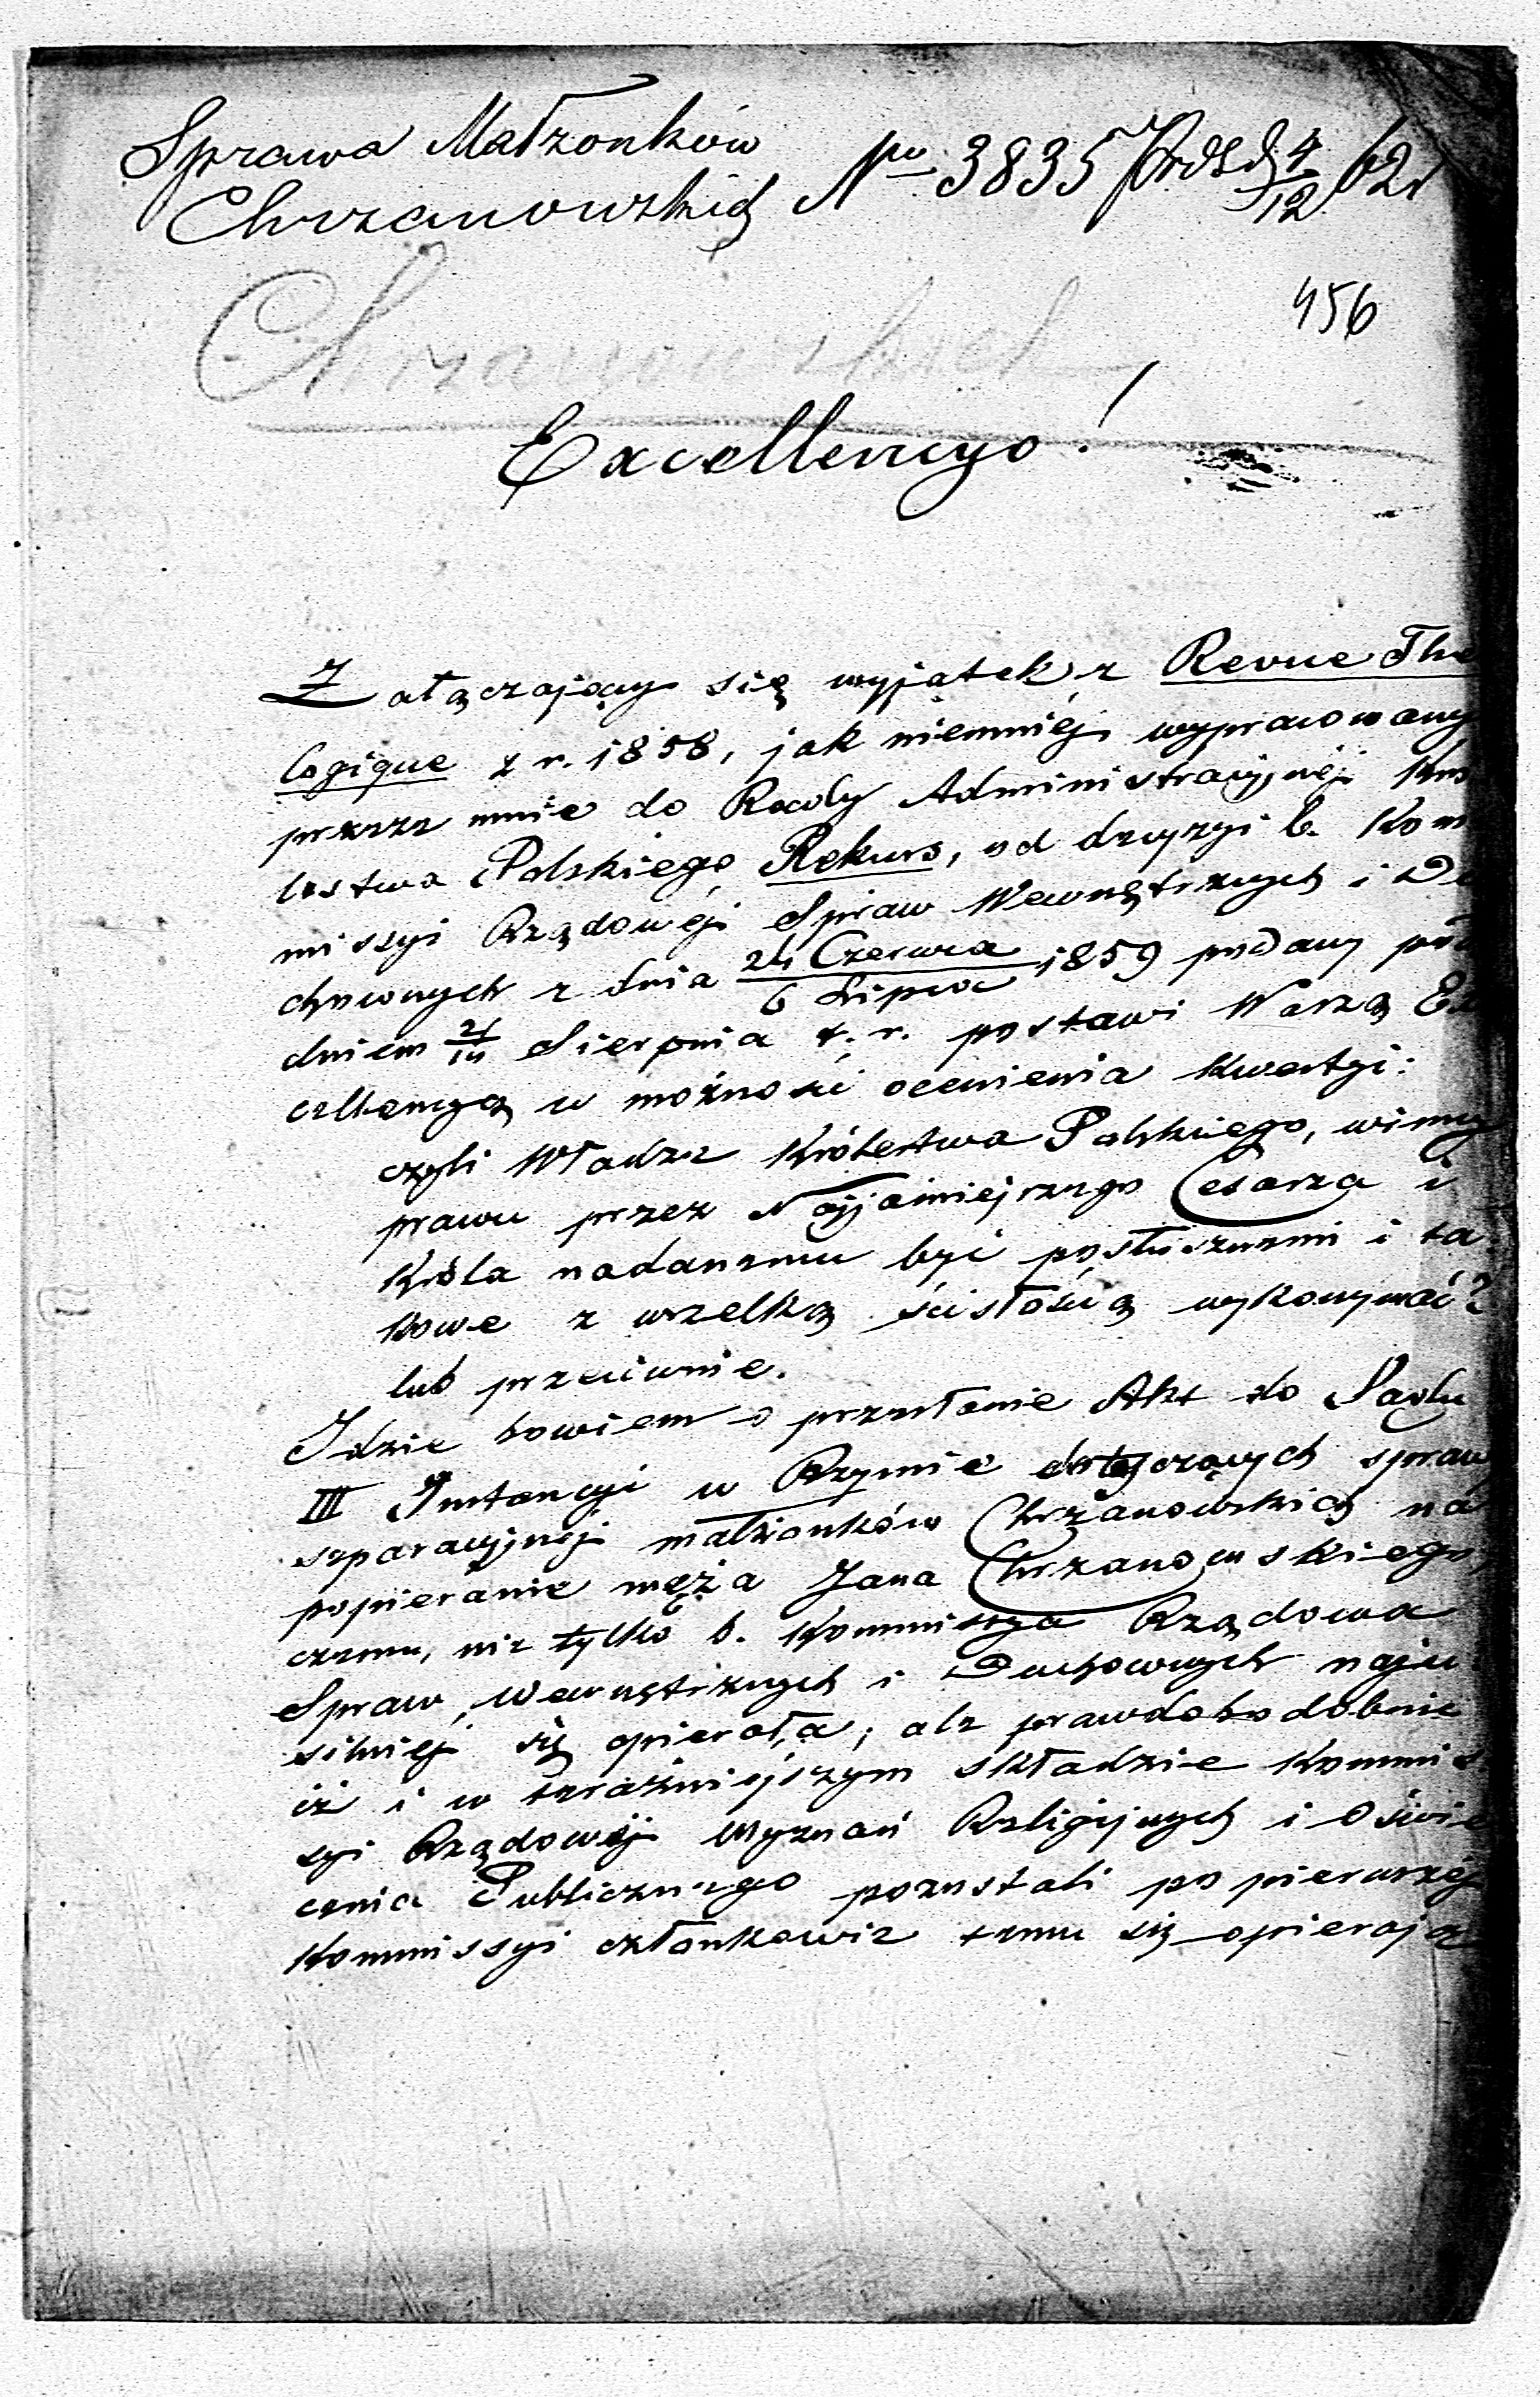 Sprawa Małżonków
Chrzanowskich No 3835 4/12 62
456
Chrzanowskich
Excellencyo!
Załączający się wyjątek z Revue Theo
logique z r. 1858, jak niemniéj wypracowany
przeze mnie do Rady Administracyjnéj Kró
lestwa Polskiego Rekurs, od decyzyi b. Kom
missyi Rządowéj Spraw Wewnętrznych i Du
chownych z dnia 24 Czerwca / 6 Lipca 1859 podany pod
dniem Sierpnia t. r. postawi Waszą Ex
cellencyą w możności ocenienia kwestyi:
czyli Władze Królestwa Polskiego, winny
prawu przez Najjaśniejszego Cesarza i
Króla nadanemu być posłusznemi i ta
kowe z wszelką ścisłością wykonywać?
lub przeciwnie.
Idzie bowiem o przesłanie Akt do Sądu
III Instancyi w Rzymie dotyczących sprawy
separacyjnéj małżonków Chrzanowskich na
popieranie męża Jana Chrzanowskiego,
czemu, nie tylko b. Kommissya Rządowa
Spraw Wewnętrznych i Duchownych naju
silniéj się opierała, ale prawdobodobnie
iż i w teraźniejszym składzie Kommis
syi Rządowéj Wyznań Religijnych i Oświe
cenia Publicznego pozostali po pierwszéj
Kommissyi członkowie temu się opierają